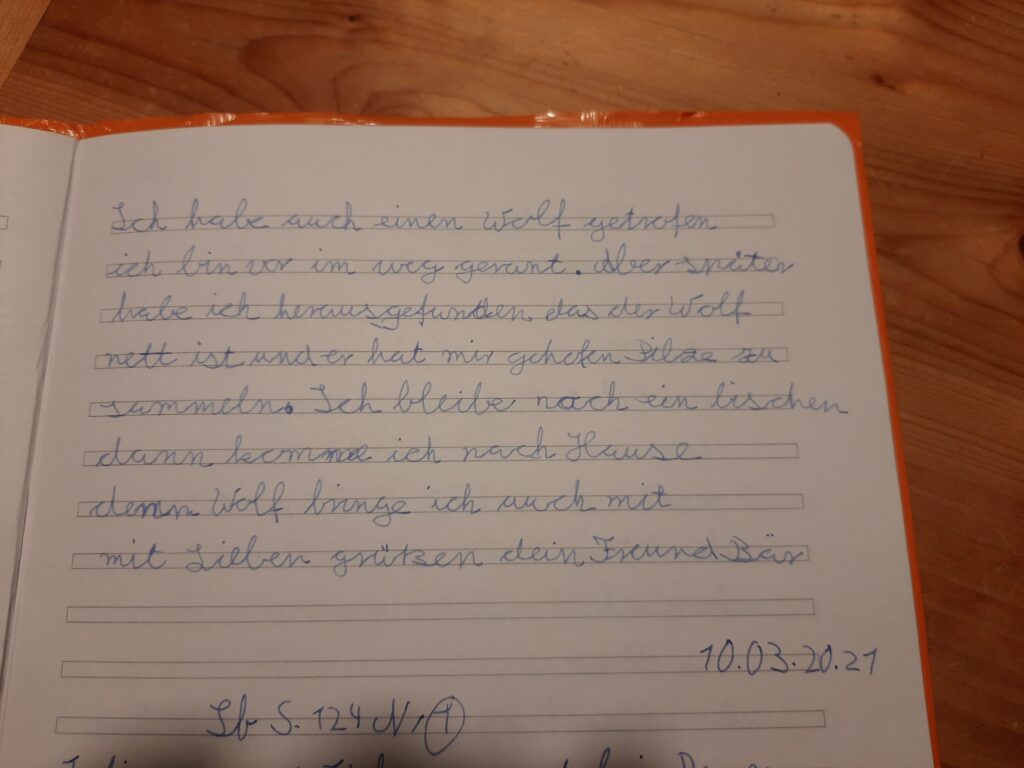 Ich habe auch einen Wolf getrofen
ich bin vor im weg gerant. Aber später
habe ich herausgefunden das der Wolf
nett ist und er hat mir geholfen Pilze zu
sammeln. Ich bleibe noch ein bischen
dann komme ich nach Hause
denn Wolf bringe ich auch mit
mit Lieben grüßen dein Freund Bär
10.03.20.21
Lb S. 124 Nr. 1